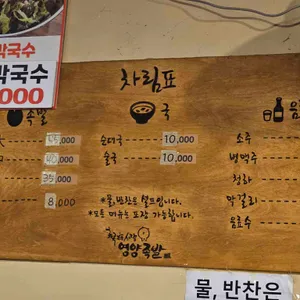 막국수
막국수
000
차림표
족발
국
음
45,000
40,000
35,000
8,000
순대국 10,000
술국 10,000
소주
병맥주
청하
막걸리
음료수
*물,반찬은 셀프입니다.
*모든 메뉴는 포장 가능합니다.
영양족발
물, 반찬은